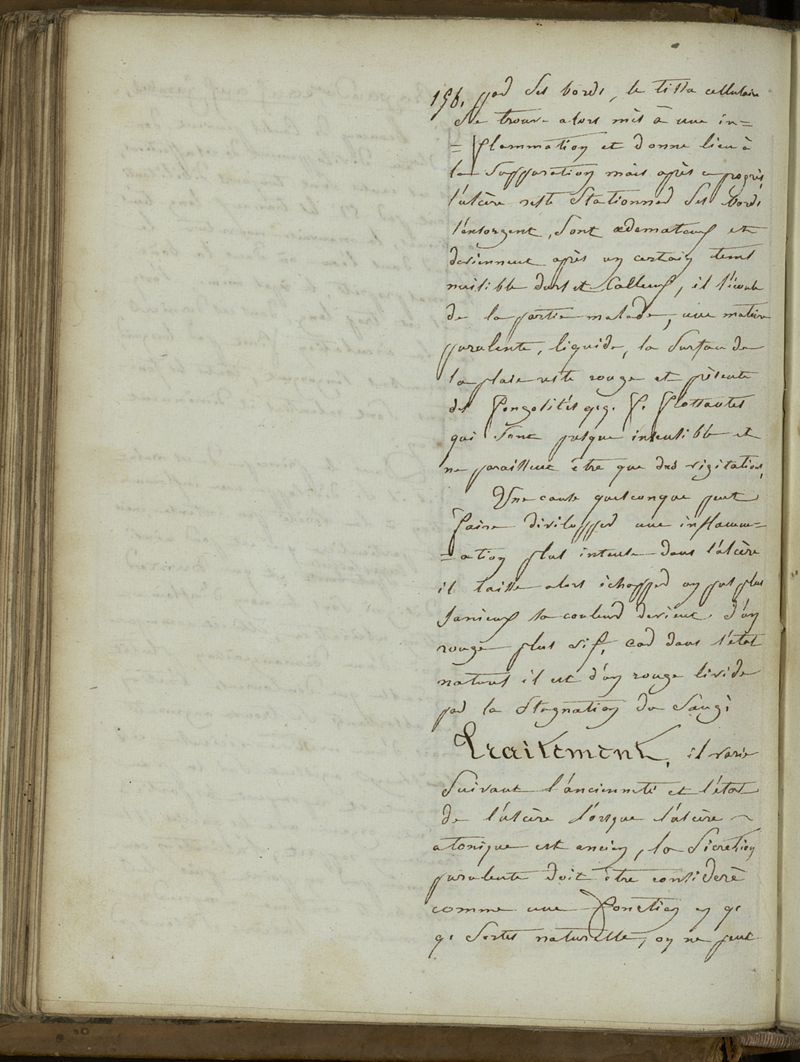 196. par ses bords, le tissu cellulaire
se trouve alors mis à une in=
=flammation et donne lieu à
la suppuration mais après ce progrès,
l'ulcère reste stationner ses bords
s'engorgent, sont œdemateux et
deviennent après un certain tems
durs et calleux, il s'écoule
de la partie malade, une matière
purulente, liquide, la surface de
la plaie reste rouge et présente
des fongosités qqs. f. flottantes
qui sont presque insensible et
ne paraissent être que des végétations,
Une cause quelconque peut
faire développer une inflamm=
=ation plus intense dans l'ulcère
il laisse alors échapper un pus plus
sanieux sa couleur devient d'un
rouge plus vif, car dans l'état
naturel il est d'un rouge livide
par la stagnation du sang;
Traitement, il varie
suivant l'ancienneté et l'état
de l'ulcère lorsque l'ulcère
atonique est ancien, la sécretion
purulente doit être considerè
comme une fonction en q.
q. sortes naturelle, on ne peut